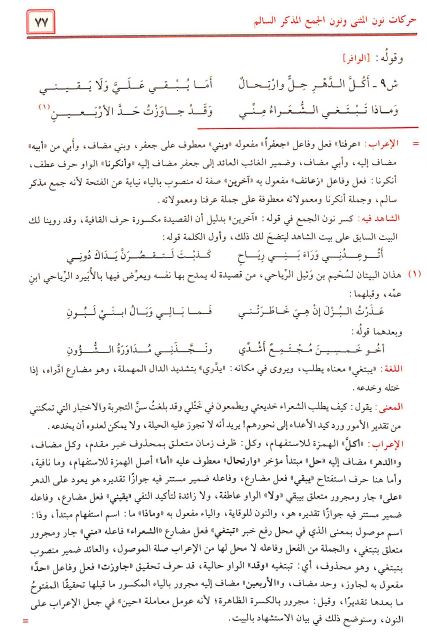 حركات نون المثنى ونون الجمع المذكر السالم ٧٧
وقولُه: [الوافر]
ش٩ - أَكُلَّ الدَّهْرِ حِلٌّ وارْتِحالٌ أَمَا يُبْقِي عَلَيَّ وَلَا يَقِينِي
وَماذَا تَبْتَغِي الشُّعَراءُ مِنِّي وَقَدْ جاوَزْتُ حَدَّ الأَرْبَعِينِ (١)
= الإعراب: «عرفنا» فعل وفاعل «جعفراً» مفعوله «وبني» معطوف على جعفر، وبني مضاف، وأبي من «أبيه»
مضاف إليه، وأبي مضاف، وضمير الغائب العائد إلى جعفر مضاف إليه «وأنكرنا» الواو حرف عطف،
أنكرنا: فعل وفاعل «زعانف» مفعول به «آخرين» صفة له منصوب بالياء نيابة عن الفتحة لأنه جمع مذكر
سالم، وجملة أنكرنا ومعمولاته معطوفة على جملة عرفنا ومعمولاته.
الشاهد فيه: كسر نون الجمع في قوله: «آخرين» بدليل أن القصيدة مكسورة حرف القافية، وقد روينا لك
البيت السابق على بيت الشاهد ليتضح لك ذلك، وأول الكلمة قوله:
أَتُوعِدُنِي وَرَاءَ بَنِي رِيَاحٍ كَذَبْتَ لَتَقْصُرَنَّ يَدَاكَ دُونِي
(١) هذان البيتان لسُحَيم بن وَثِيل الرياحي، من قصيدة له يمدح بها نفسه ويعرِّض فيها بالأُبَيرد الرِّياحي ابنِ
عمِّه، وقبلهما:
عَذَرْتُ البُزْلَ إنْ هِيَ خَاطَرَتْنِي فَما بَالِي وَبَالُ ابْنَيْ لَبُونِ
وبعدهما قوله:
أَخُو خَمْسِينَ مُجْتَمِعٌ أَشُدِّي وَنَجَّذَنِي مُدَاوَرَةُ الشُّؤُونِ
اللغة: «يبتغي» معناه يطلب، ويروى في مكانه: «يدَّري» بتشديد الدال المهملة، وهو مضارع ادَّراه، إذا
ختله وخدعه.
المعنى: يقول: كيف يطلب الشعراء خديعتي ويطمعون في خَتْلي وقد بلغتُ سنَّ التجربة والاختبار التي تمكنني
من تقدير الأمور ورد كيد الأعداء إلى نحورهم؟ يريد أنه لا تجوز عليه الحيلة، ولا يمكن لعدوه أن يخدعه.
الإعراب: «أكلَّ» الهمزة للاستفهام، وكل: ظرف زمان متعلق بمحذوف خبر مقدم، وكل مضاف،
و«الدهر» مضاف إليه «حل» مبتدأ مؤخر «وارتحال» معطوف عليه «أما» أصل الهمزة للاستفهام، وما نافية،
وأما هنا حرف استفتاح «يبقي» فعل مضارع، وفاعله ضمير مستتر فيه جوازًا تقديره هو يعود على الدهر
«علي» جار ومجرور متعلق بيبقي «ولا» الواو عاطفة، ولا زائدة لتأكيد النفي «يقيني» فعل مضارع، وفاعله
ضمير مستتر فيه جوازًا تقديره هو، والنون للوقاية، والياء مفعول به «وماذا» ما: اسم استفهام مبتدأ، وذا:
اسم موصول بمعنى الذي في محل رفع خبر «تبتغي» فعل مضارع «الشعراء» فاعله «مني» جار ومجرور
متعلق بتبتغي، والجملة من الفعل وفاعله لا محل لها من الإعراب صلة الموصول، والعائد ضمير منصوب
بتبتغي، وهو محذوف، أي: تبتغيه «وقد» الواو حالية، قد حرف تحقيق «جاوزت» فعل وفاعل «حدَّ»
مفعول به لجاوز، وحد مضاف، و«الأربعين» مضاف إليه مجرور بالياء المكسور ما قبلها تحقيقًا المفتوحُ
ما بعدها تقديرًا، وقيل: مجرور بالكسرة الظاهرة؛ لأنه عومل معاملة «حين» في جعل الإعراب على
النون، وسنوضح ذلك في بيان الاستشهاد بالبيت. =